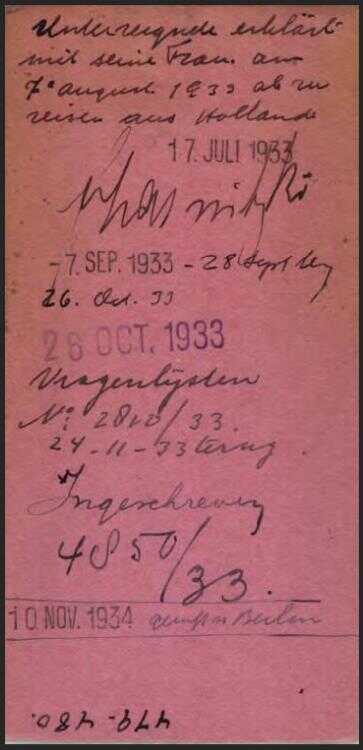 Unterzeignde erklärt
mit seine Frau. am
7e august 1933 ab zu
reisen aus Hollande
17. JULI 1933
-7. SEP. 1933 - 28 Sept
26. Oct. 33
26 OCT. 1933
Vragenlijsten
No: 2812/33.
24-11-33 terug.
Ingeschreven
4850/33.
10 NOV. 1934 Berlin
479-480.